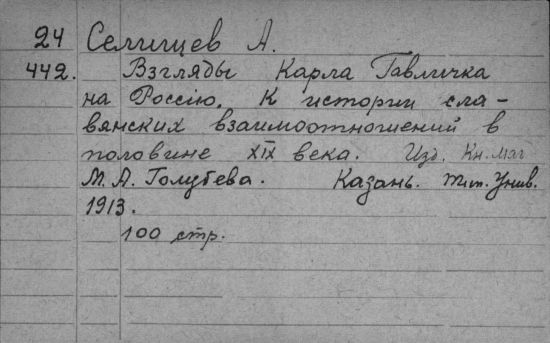 24 Селищев А.
442. Взгляды Карла Гавличка
на Россію. К истории сла-
вянских взаимоотношений в
половине XIX века. Изд. Кн. маг
М. А. Голубева. Казань. Тип. Унив.
1913.
100 стр.